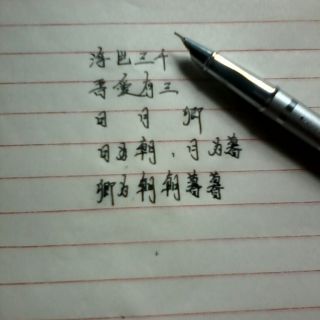 浮世三千
吾爱有三
日 月 卿
日为朝，月为暮
卿为朝朝暮暮